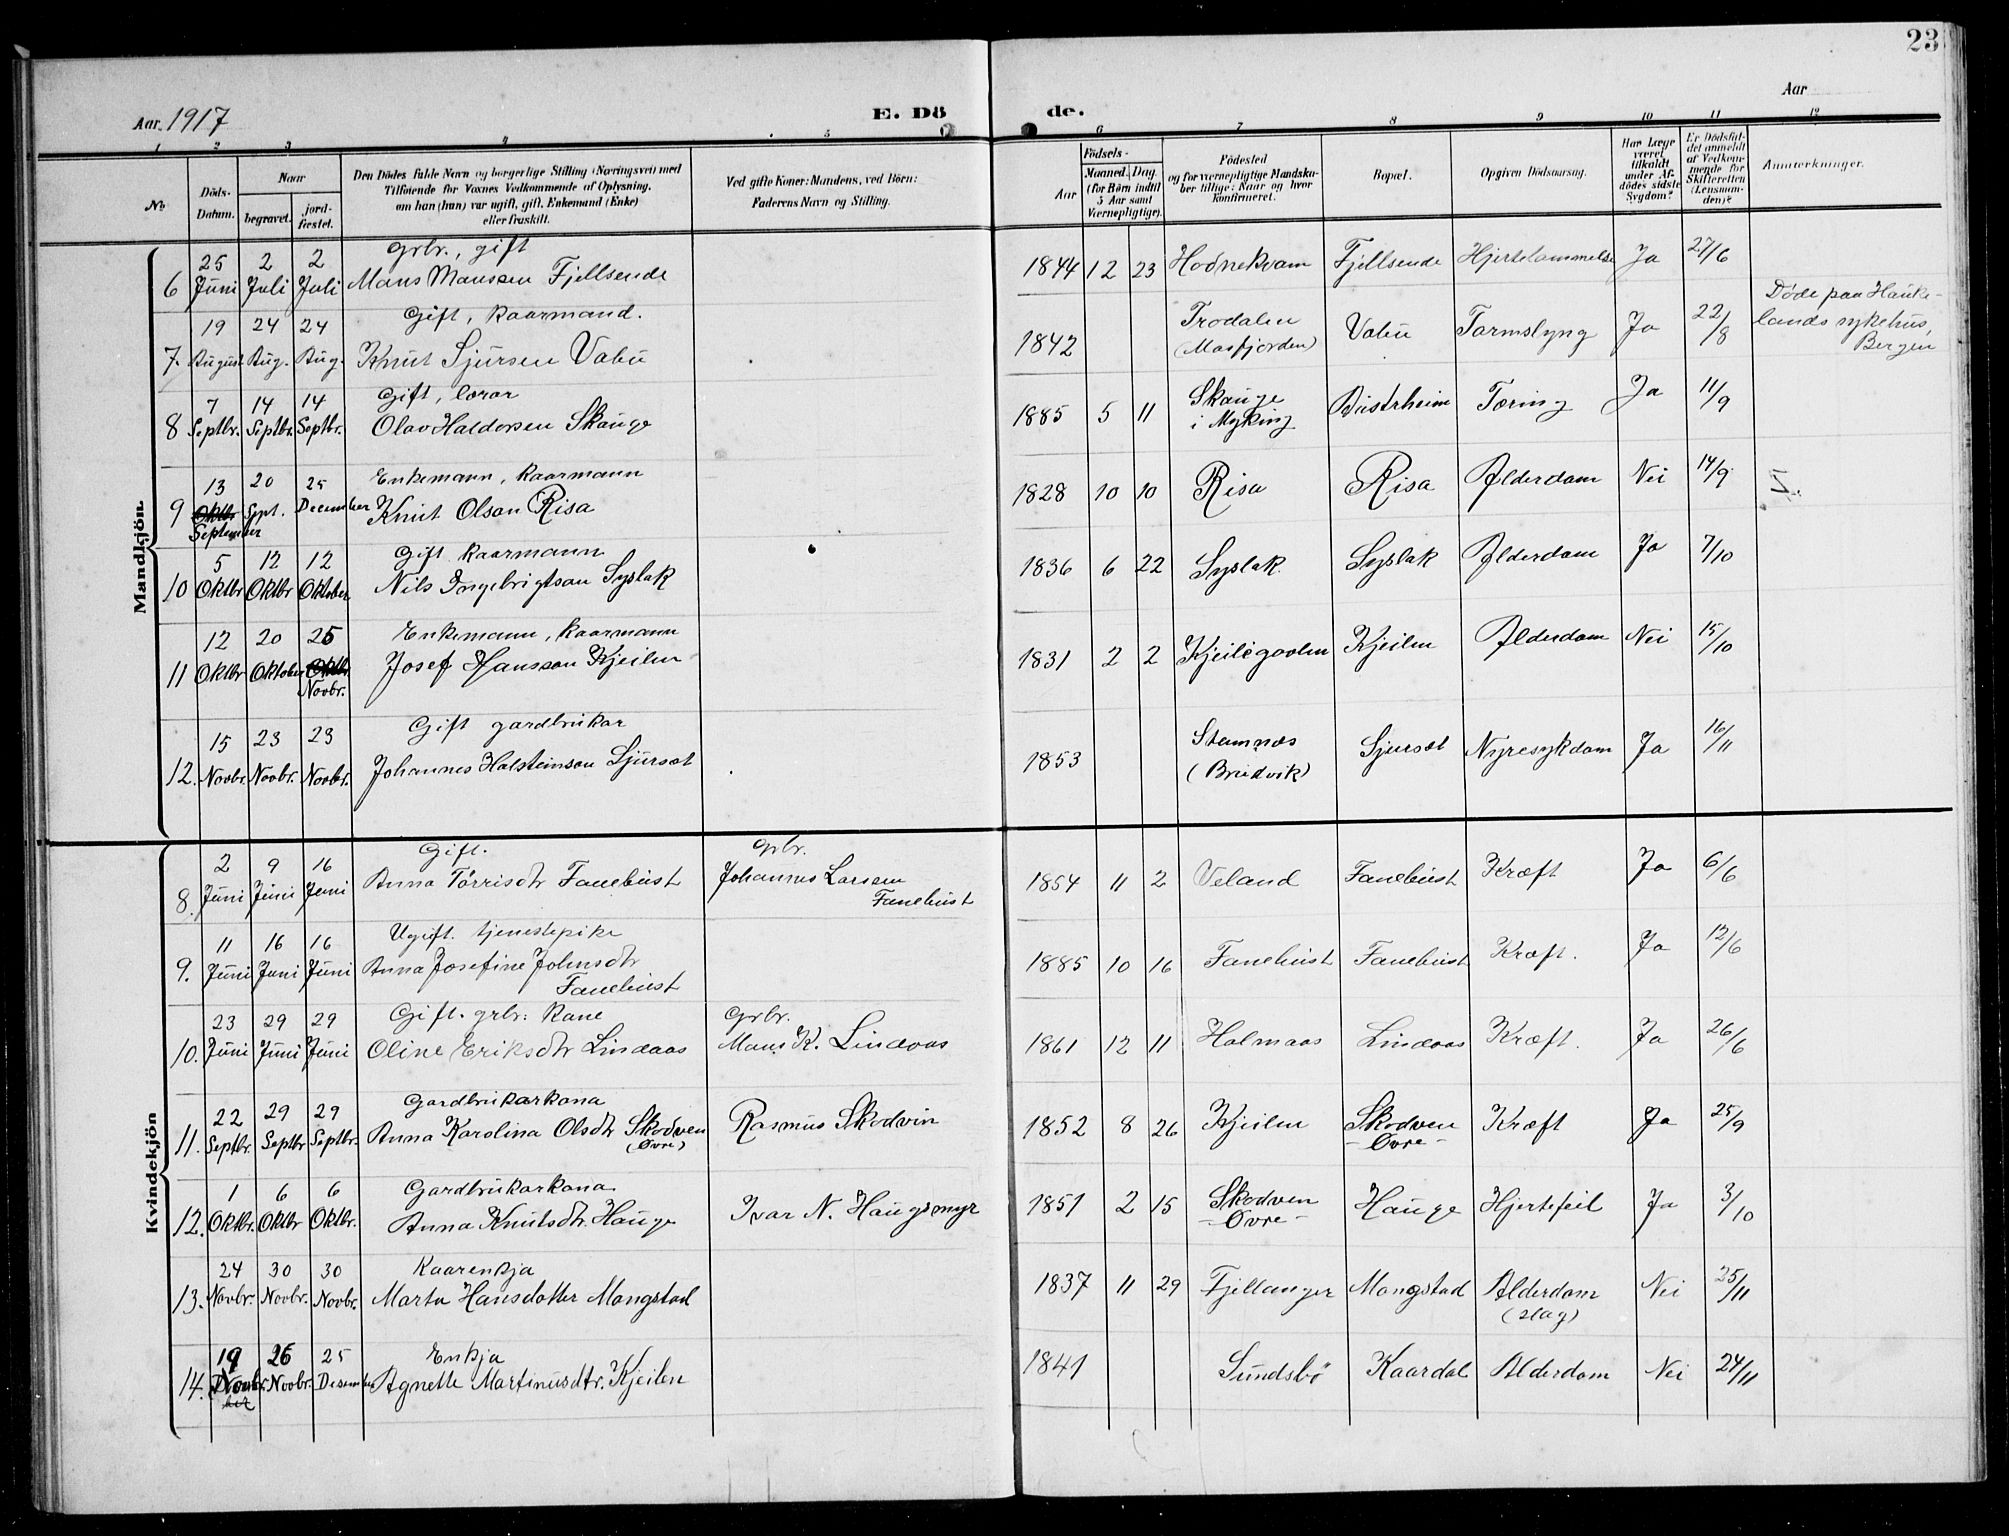 23
Aar 1917
E. Dö
de.
Aar
1 2 3 4 5 6 7 8 9 10 11 12
No.
Döds-Datum.
Naar
begravet.
jord-fæstet.
Den Dödes fulde Navn og borgerlige Stilling (Næringsvei) med
Tilföiende for Voxnes Vedkommende af Oplysning,
om han (hun) var ugift, gift, Enkemand (Enke)
eller fraskilt.
Ved gifte Koner: Mandens, ved Börn:
Faderens Navn og Stilling.
Födsels-
Aar
Maaned. Dag.
(for Börn indtil
5 Aar samt
Værnepligtige).
Födested
og for værnepligtige Mandska-
ber tillige: Naar og hvor
konfirmeret.
Bopæl.
Opgiven Dödsaarsag.
Har Læge
været
tilkaldt
under Af-
dödes sidste
Sygdom?
Er Dödsfal-
det anmeldt
af Vedkom-
mende for
Skifteretten
(Lensman-
den)?
Anmærkninger.
Mandkjön.
Grbr., gift
6 25 Juni 2 Juli 2 Juli Mans Mansen Fjellsende 1844 12 23 Hodnekvam Fjellsende Hjertelammelse Ja 27/6
Gift, kaarmand.
7. 19 August 24 Aug. 24 Aug. Knut Sjursen Vabu 1842 Trodalen (Masfjorden) Vabu Tarmslyng Ja 22/8 Døde paa Hauke-
lands sykehus,
Bergen
Gift, lærar
8 7 Septbr. 14 Septbr. 14 Septbr. Olav Haldorsen Skauge 1885 5 11 Skauge i Myking Bustrheim Tæring Ja 11/9
Enkemann, kaarmann
9 13 Oktbr. September 20 Sept. 25 December Knut Olson Risa 1828 10 10 Risa Risa Alderdom Nei 14/9
Gift kaarmann
10 5 Oktbr 12 Oktbr 12 Oktober Nils Ingebrigtson Syslak 1836 6 22 Syslak Syslak Alderdom Ja 7/10
Enkemann, kaarmann
11 12 Oktbr 20 Oktober 25 Oktbr Novbr. Josef Hansson Kjeilen 1831 2 2 Kjeilegavlen Kjeilen Alderdom Nei 15/10
Gift gardbrukar
12. 15 Novbr. 23 Novbr. 23 Novbr. Johannes Halsteinson Sjursæt 1853 Stamnæs (Bruvik) Sjursæt Nyresykdom Ja 16/11
Kvindekjön
Gift. Grbr.
8. 2 Juni 9 Juni 16 Juni Anna Törrisdtr Fanebust Johannes Larsen Fanebust 1854 11 2 Veland Fanebust Kræft Ja 6/6
Ugift. tjenestepike
9. 11 Juni 16 Juni 16 Juni Anna Josefine Johnsdtr Fanebust 1885 10 16 Fanebust Fanebust Kræft. Ja 12/6
Gift. grbr: Kane Grbr.
10. 23 Juni 29 Juni 29 Juni Oline Eriksdtr Lindaas Mans K. Lindaas 1861 12 11 Holmaas Lindaas Kræft. Ja 26/6
Gardbrukarkona
11. 22 Septbr. 29 Septbr 29 Septbr. Anna Karolina Olsdtr Skodven (Øvre) Rasmus Skodvin 1852 8 26 Kjeilen Skodven -Øvre- Kræft Ja 25/9
Gardbrukarkona
12. 1 Oktbr. 6 Oktbr 6 Oktbr. Anna Knutsdtr. Hauge Ivar N. Haugsmyr 1851 2 15 Skodven -Øvre- Hauge Hjertefeil Ja 3/10
Kaarenkja
13. 24 Novbr. 30 Novbr. 30 Novbr. Marta Hansdatter Mongstad 1837 11 29 Fjellanger Mongstad Alderdom (slag) Nei 25/11
Enkja
14. 19 Novbr. 26 Novbr. 25 Desember Agnette Martinusdtr. Kjeilen 1841 Sundsbö Kaardal Alderdom Nei 24/11